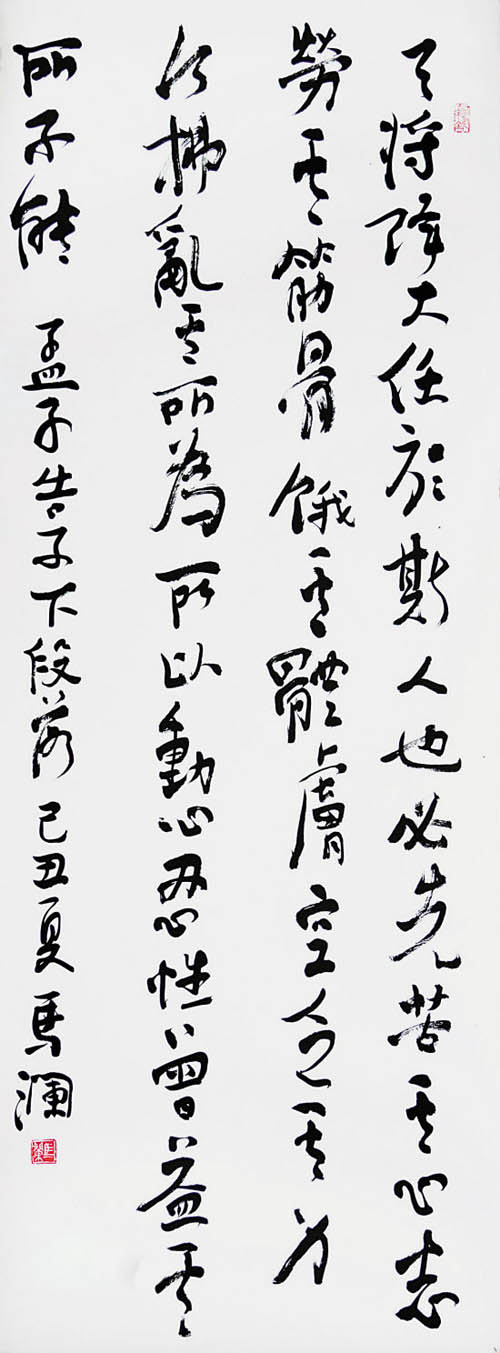 天将降大任於斯人也必先苦其心志
勞其筋骨餓其體膚空乏其身
行拂亂其所為所以動心忍性曾益其
所不能 孟子告子下段落 己丑夏 馬澜